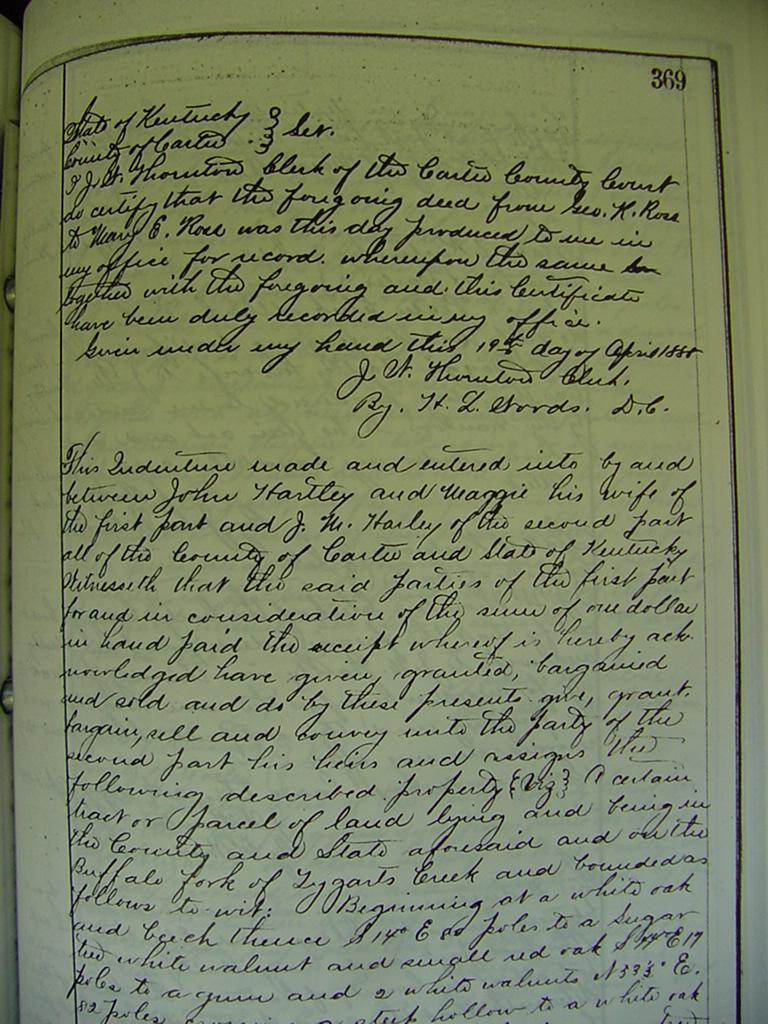 369
State of Kentucky }
County of Carter } Sct.
I J. N. Thornton Clerk of the Carter County Court
do certify that the foregoing deed from Geo. K. Rose
to Mary E. Rose was this day produced to me in
my office for record. whereupon the same
together with the foregoing and this Certificate
have been duly recorded in my office.
Given under my hand this 19th day of April 188
J. N. Thornton Clerk.
By. H. L. Woods. D.C.
This Indenture made and entered into by and
between John Hartley and Maggie his wife of
the first part and J. M. Harley of the second part
all of the County of Carter and State of Kentucky
Witnesseth that the said parties of the first part
for and in consideration of the sum of one dollar
in hand paid the receipt whereof is hereby ack-
nowledged have given, granted, bargained
and sold and do by these presents give, grant.
bargain, sell and convey unto the party of the
second part his heirs and assigns the
following described property {Viz} A certain
tract or parcel of land lying and being in
the County and State aforesaid and on the
Buffalo fork of Tygarts Creek and bounded as
follows to-wit: Beginning at a white oak
and beech thence S 14° E 80 poles to a sugar
tree white walnut and small red oak S E 17
poles to a gum and 2 white walnuts N 33½° E.
82 poles a steep hollow to a white oak